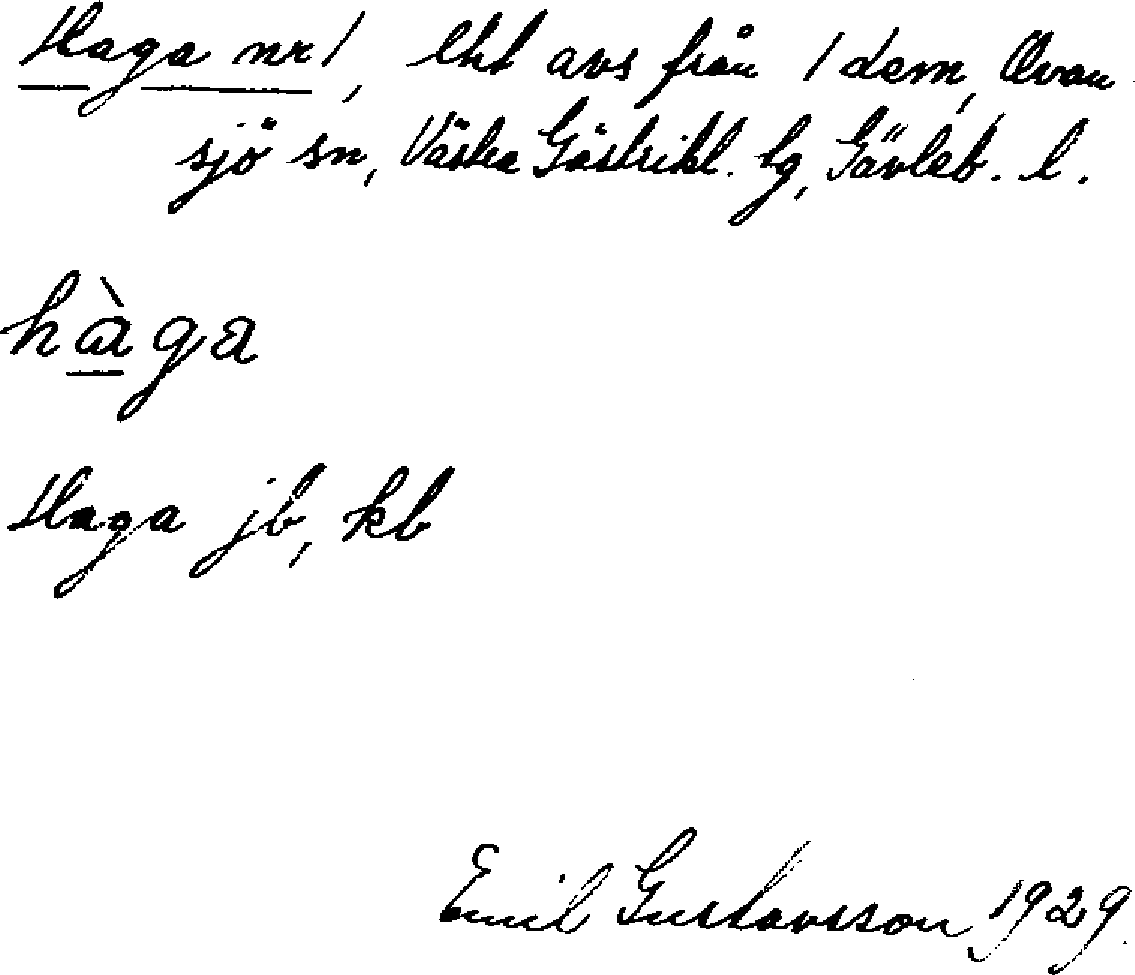 Haga nr 1, lht avs från 1 dem, Ovan
sjö sn, Västra Gästrikl. tg, Gävleb. l.
hàga
Haga jb, kb
Emil Gustavsson 1929.